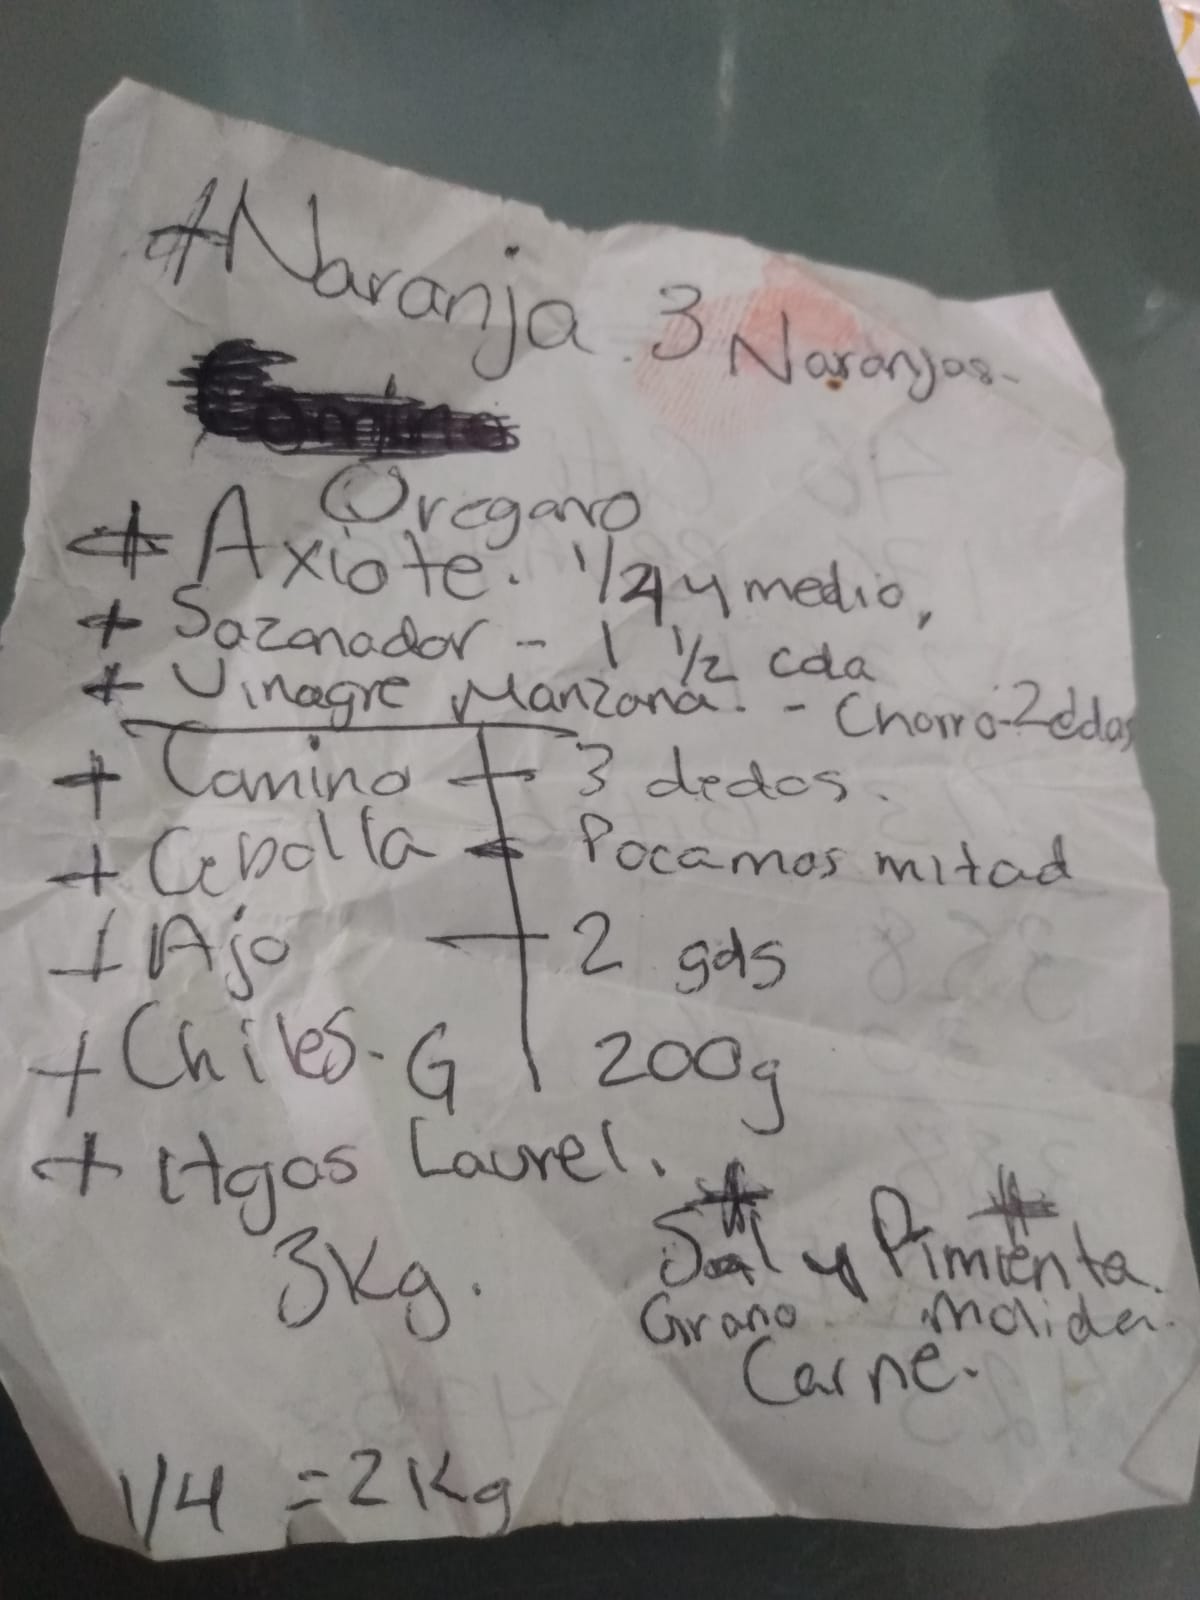 + Naranja. 3 Naranjas-
Comino
Oregano
+ Axiote. 1/4 y medio,
+ Sazonador - 1 1/2 cda
+ Vinagre Manzana. - Chorro-2cdas
+ Comino + 3 dedos.
+ Cebolla - Pocamos mitad
+ Ajo - 2 gds
+ Chiles-G 200g
+ Hgas Laurel.
3Kg.
Sal y Pimienta.
Grano molida.
Carne.
1/4 = 2Kg